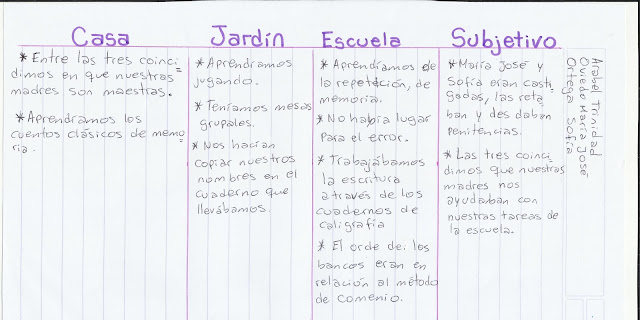 Casa
* Entre las tres coinci=
dimos en que nuestras
madres son maestras.
* Aprendramos los
cuentos clásicos de memo
ria.
Jardín
* Aprendramos
jugando.
* Teníamos mesas
grupales.
* Nos hacían
copiar nuestros
nombres en el
cuaderno que
llevábamos.
Escuela
* Aprendíamos de
la repetición, de
memoria.
* No había lugar
para el error.
* Trabajábamos
la escritura
através de los
cuadernos de
caligrafía
* El orde de: los
bancos eran en
relación al método
de Comenio.
Subjetivo
* María José y
Sofía eran casti
gadas, las reta
ban y des daban
penitencias.
* Las tres coinci
dimos que nuestras
madres nos
ayudaban con
nuestras tareas de
la escuela.
Arabel Trinidad
Oviedo María José
Ortega Sofía